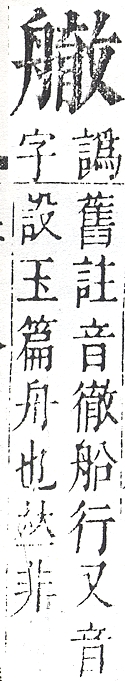 譌
字
舊註音徹船行又音
設玉篇舟也𠀤非